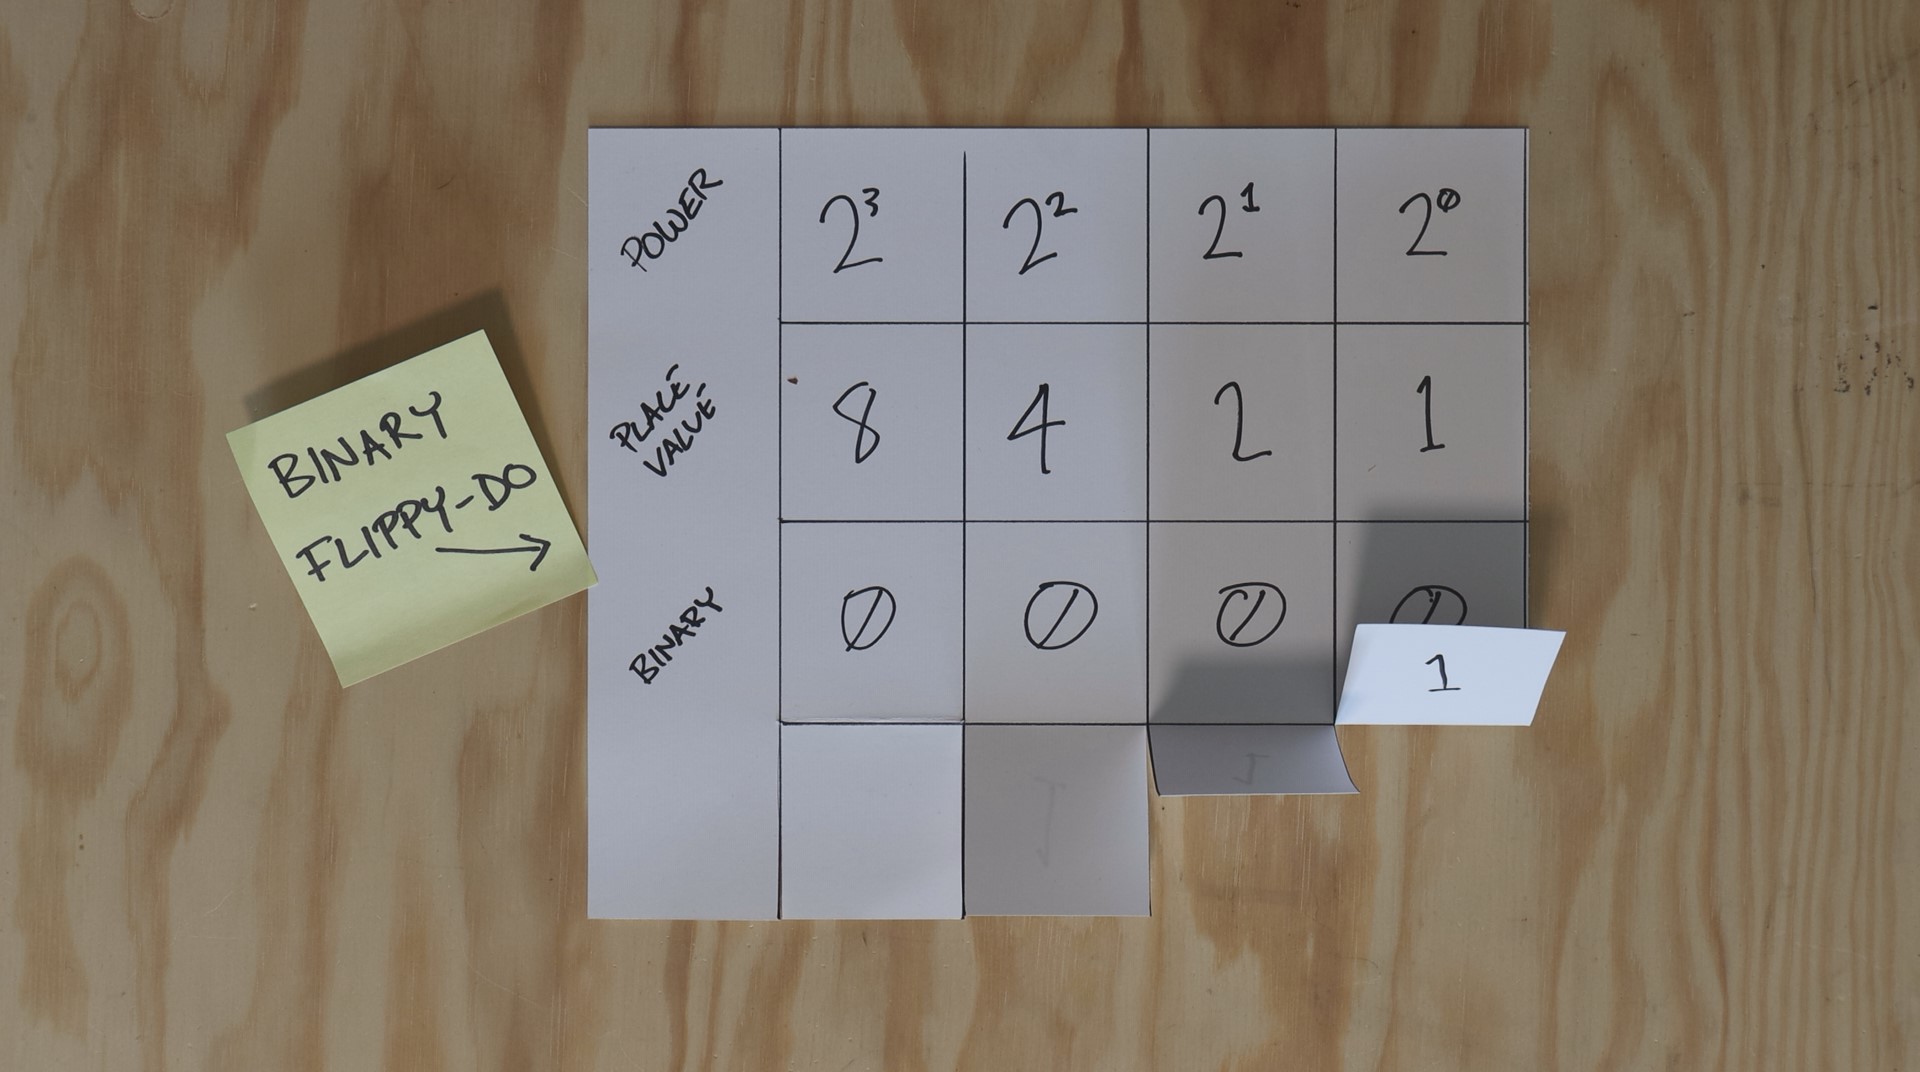 BINARY
FLIPPY-DO
POWER 2³ 2² 2¹ 2⁰
PLACE-
VALUE 8 4 2 1
BINARY 0 0 0 0
1
1 1